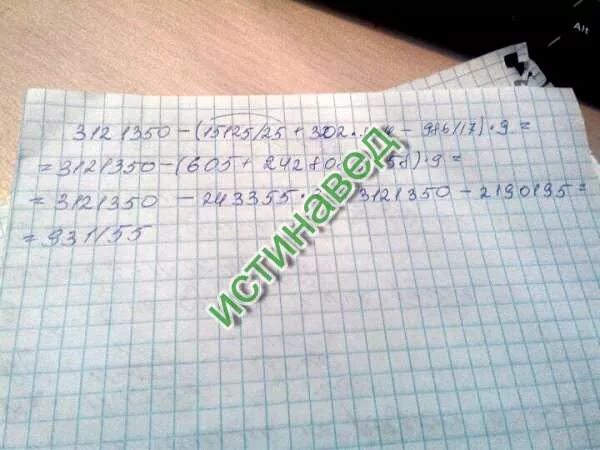 3121350-(15125/25+302· - 986/17)·9=
=3121350-(605+ 58)·9=
=3121350 - 243355· 3121350-2190195=
=931155
истинавед
Alt